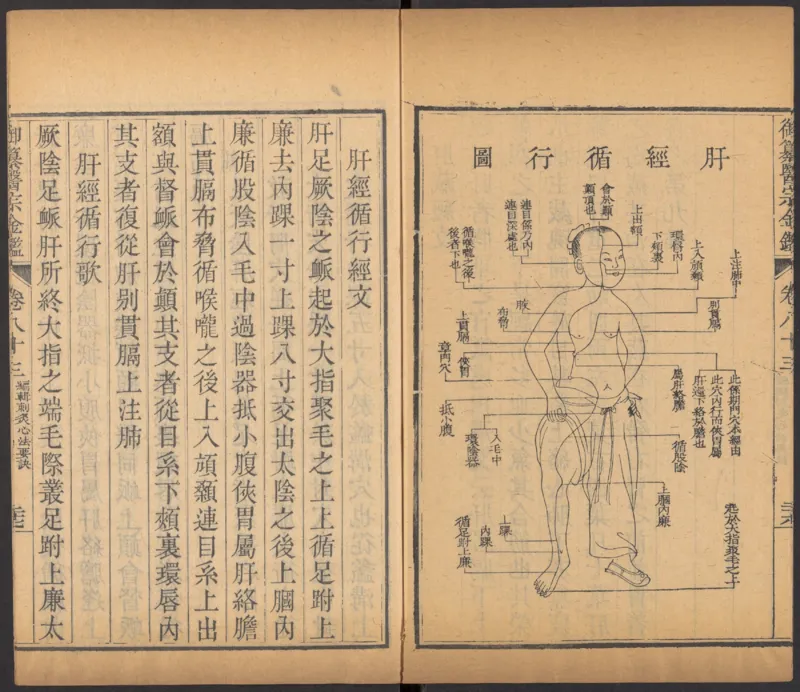 御纂醫宗金鑑
卷八十三
肝經循行圖
上注肺中
別貫膈
此從期門穴本經由
此穴內行而俠胃屬
肝還下絡於膽也
起於大指聚毛之上
上入頏顙
環唇內
下頰裏
屬肝絡膽
循股陰
上膕內廉
上出額
會於巔
巔頂也
連目系乃內
連目深處也
循喉嚨之後
後者下也
布脅
上貫膈
俠胃
章門穴
抵小腹
入毛中
環陰器
上踝
內踝
循足跗上廉
肝經循行經文
肝足厥陰之脈起於大指聚毛之上上循足跗上
廉去內踝一寸上踝八寸交出太陰之後上膕內
廉循股陰入毛中過陰器抵小腹俠胃屬肝絡膽
上貫膈布脅循喉嚨之後上入頏顙連目系上出
額與督脈會於巔其支者從目系下頰裏環唇內
其支者復從肝別貫膈上注肺
肝經循行歌
厥陰足脈肝所終大指之端毛際叢足跗上廉太
御纂醫宗金鑑
卷八十三
編輯刺灸心法要訣